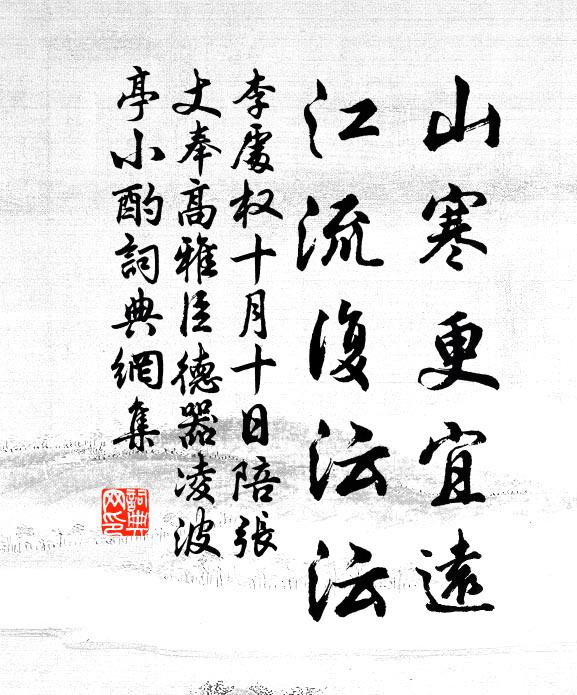 山寒更宜遠
江流復沄沄
李處权十月十日陪張
丈奉高雅臣德器凌波
亭小酌詞典網集
詞典
网印